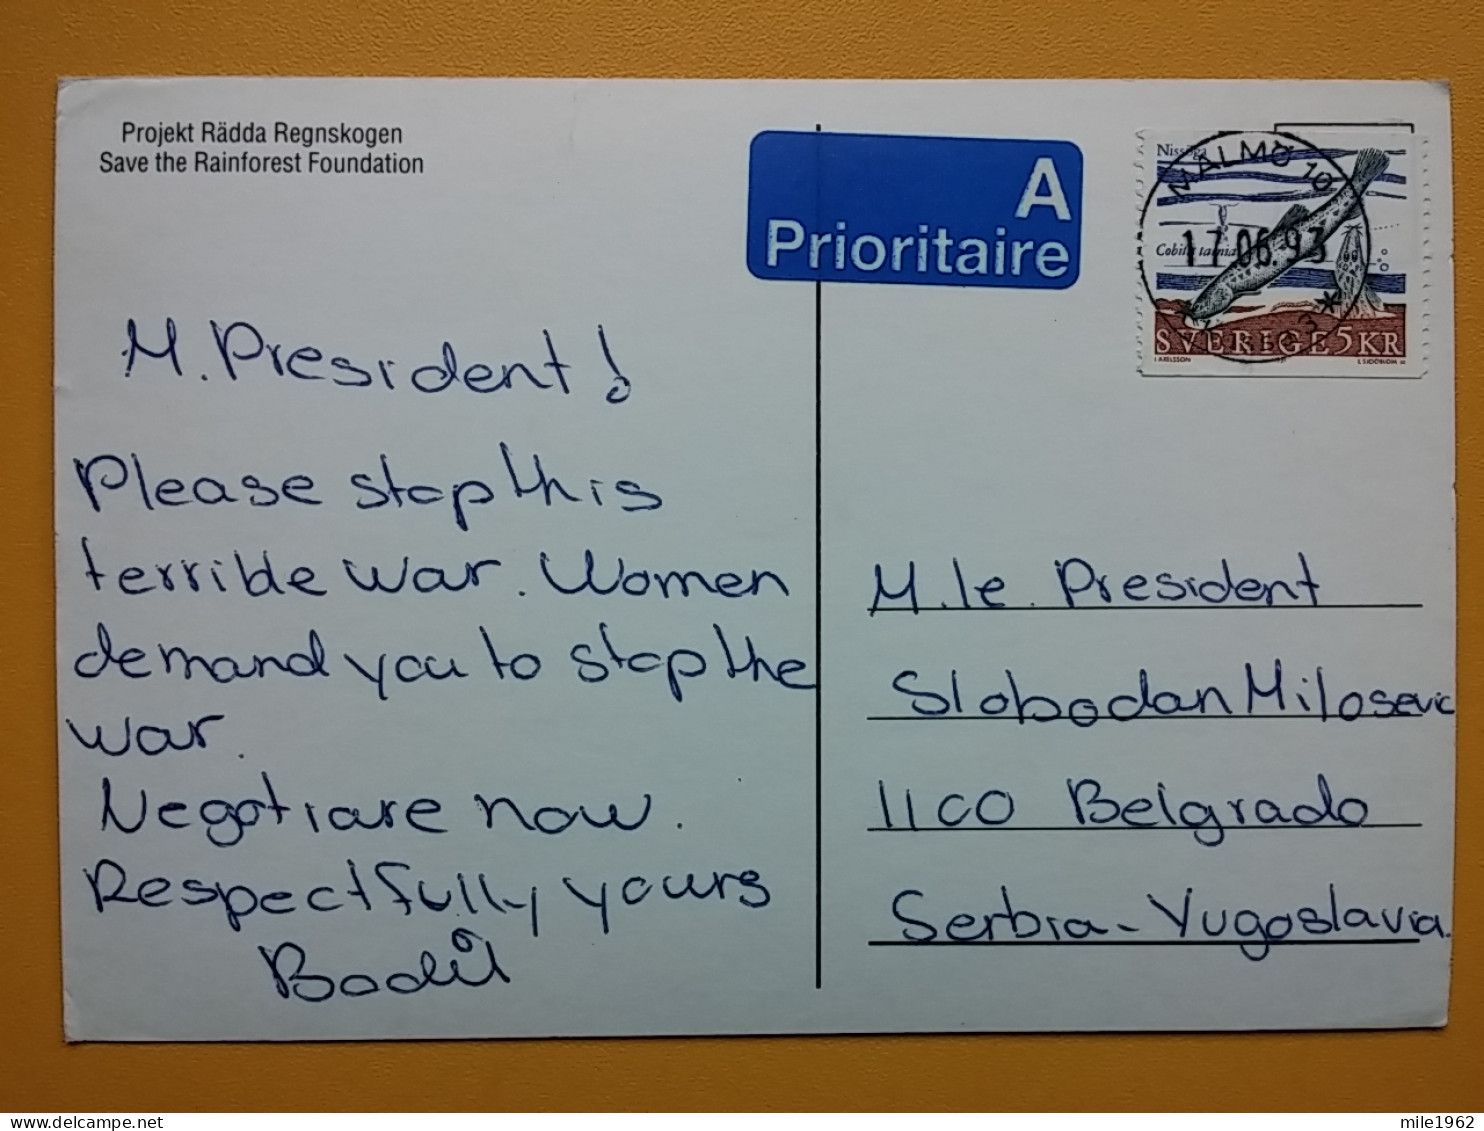 Projekt Rädda Regnskogen
Save the Rainforest Foundation
A
Prioritaire
Nissöga
MALMÖ 10
Cobitis taenia
17.06.93
SVERIGE 5KR
M. President!
Please stop this
terrible war. Women
demand you to stop the
war.
Negotiare now.
Respectfully yours
Bodil
M. le. President
Slobodan Milosevic
1100 Belgrado
Serbia - Yugoslavia.
mile1962